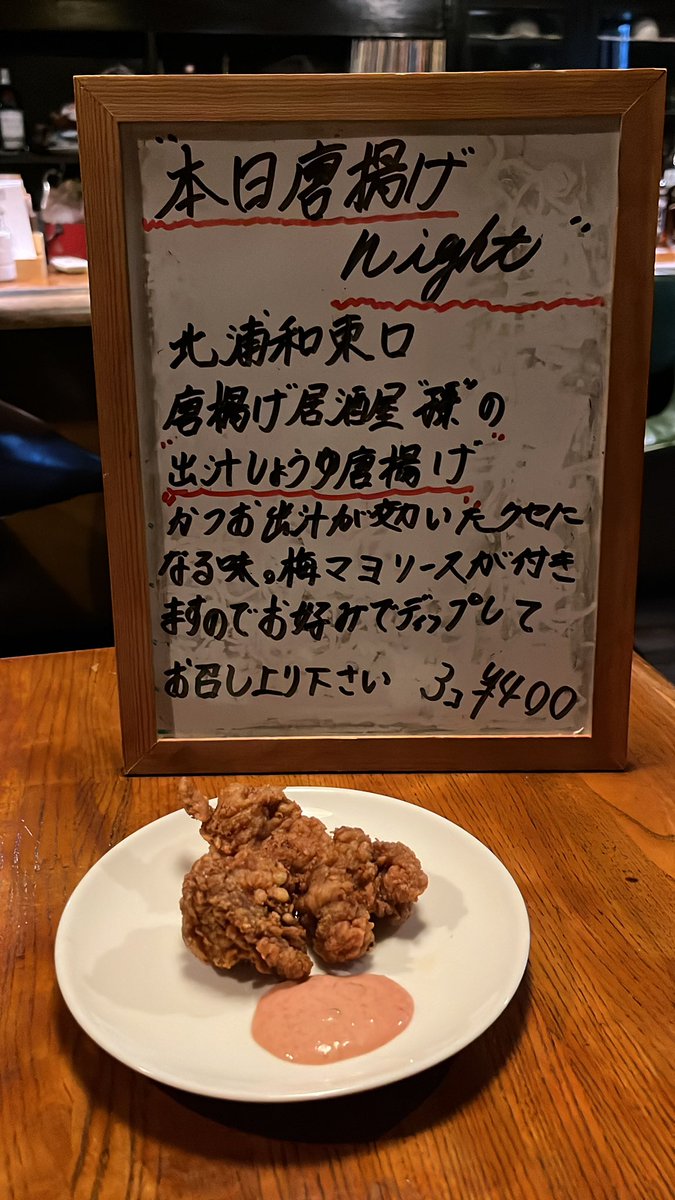 "本日唐揚げ
night"
北浦和東口
唐揚げ居酒屋 の
"出汁しょうゆ唐揚げ"
かつお出汁が効いたクセに
なる味。梅マヨソースが付き
ますのでお好みでディップして
お召し上り下さい 3コ ¥400